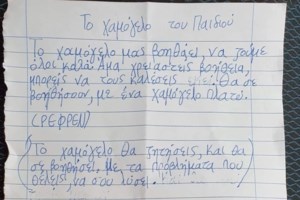 Το χαμόγελο του Παιδιού
Το χαμόγελο μας βοηθάει, να ζούμε
όλοι καλά. Άμα χρειαστείς βοήθεια,
μπορείς να τους καλέσεις Θα σε
βοηθήσουν, με ένα χαμόγελο πλατύ.
(ΡΕΦΡΕΝ)
(Το χαμόγελο θα ζητήσεις, και θα
σε βοηθήσει. Με τα προβλήματα που
θέλεις, να σου λύσει.)